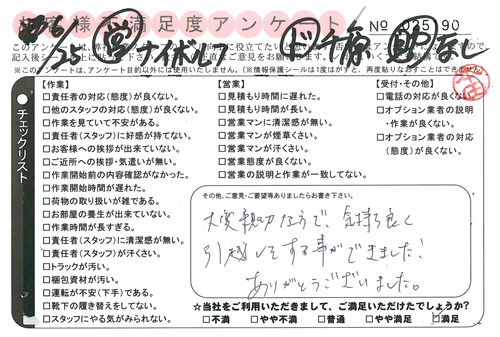 お客様不満足度アンケート
№ 025190
6/25
※このアンケートは、アンケート目的以外には使用いたしません。(※情報保護シールは1度はがすと、再度貼りなおすことはできません。)
チェックリスト
【作業】
□責任者の対応(態度)が良くない。
□他のスタッフの対応(態度)が良くない。
□作業を見ていて不安がある。
□責任者(スタッフ)に好感が持てない。
□お客様への挨拶が出来ていない。
□ご近所への挨拶・気遣いが無い。
□作業開始前の内容確認がなかった。
□作業開始時間が遅れた。
□荷物の取り扱いが雑である。
□お部屋の養生が出来ていない。
□作業時間が長すぎる。
□責任者(スタッフ)に清潔感が無い。
□責任者(スタッフ)が汗くさい。
□トラックが汚い。
□梱包資材が汚い。
□運転が不安(下手)である。
□靴下の履き替えをしてない。
□スタッフにやる気がみられない。
【営業】
□見積もり時間に遅れた。
□見積もり時間が長い。
□営業マンに清潔感が無い。
□営業マンが煙草くさい。
□営業マンが汗くさい。
□営業態度が良くない。
□営業の説明と作業が一致してない。
【受付・その他】
□電話の対応が良くない。
□オプション業者の説明
・作業が良くない。
□オプション業者の対応
(態度)が良くない。
その他、ご意見・ご要望等ありましたらお書き下さい。
大変親切な方で、気持ち良く
引越しをする事ができました!
ありがとうございました。
☆当社をご利用いただきまして、ご満足いただけたでしょうか?
□不満 □やや不満 □普通 □やや満足 □満足